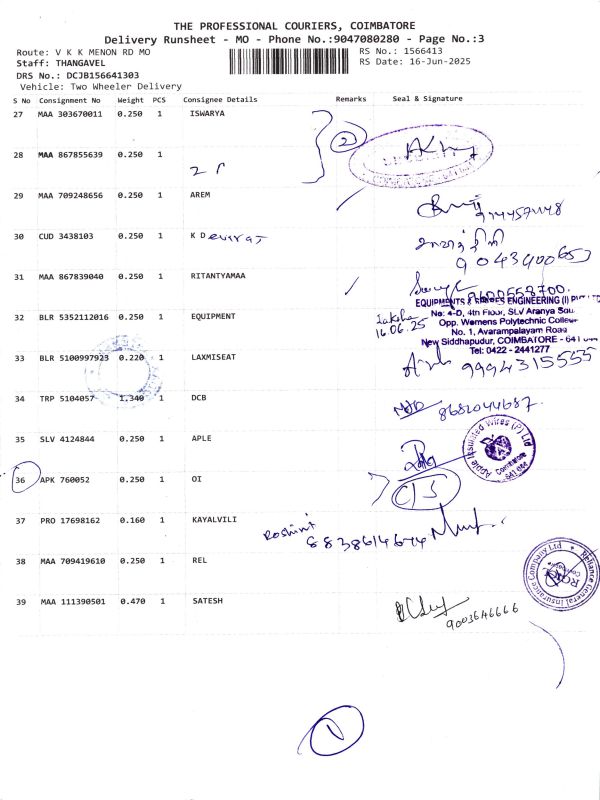 THE PROFESSIONAL COURIERS, COIMBATORE
Delivery Runsheet - MO - Phone No.:9047080280 - Page No.:3
Route: V K K MENON RD MO
RS No.: 1566413
Staff: THANGAVEL
RS Date: 16-Jun-2025
DRS No.: DCJB156641303
Vehicle: Two Wheeler Delivery
S No Consignment No Weight PCS Consignee Details Remarks Seal & Signature
27 MAA 303670011 0.250 1 ISWARYA
2
28 MAA 867855639 0.250 1
29 MAA 709248656 0.250 1 AREM
30 CUD 3438103 0.250 1 K D
31 MAA 867839040 0.250 1 RITANTYAMAA
9600558700.
32 BLR 5352112016 0.250 1 EQUIPMENT
16.06.25
No: 4-D, 4th Floor, SLV Aranya
Opp. Womens Polytechnic College
No. 1, Avarampalayam Road
New Siddhapudur, COIMBATORE
Tel: 0422 - 2441277
33 BLR 5100997923 0.220 1 LAXMISEAT
9994315555
34 TRP 5104057 1.340 1 DCB
8682044687.
35 SLV 4124844 0.250 1 APLE
Apple Insulated Wires (P) Ltd
36 APK 760052 0.250 1 OI
37 PRO 17698162 0.160 1 KAYALVILI
Roshini
38 MAA 709419610 0.250 1 REL
Reliance General Insurance Company Ltd
39 MAA 111390501 0.470 1 SATESH
9003646666